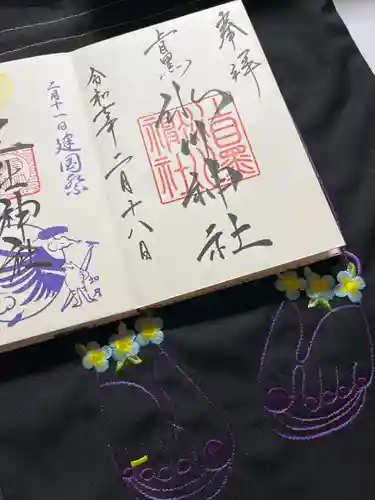 奉拝
上目黒
氷川神社
令和二年二月十八日
二月十一日建国祭
神社